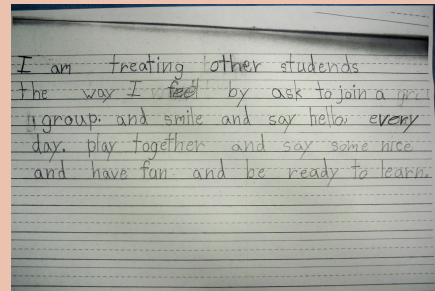 I am treating other studends
the way I feel by ask to join a
group. and smile and say hello every
day. play together and say some nice
and have fun and be ready to learn.